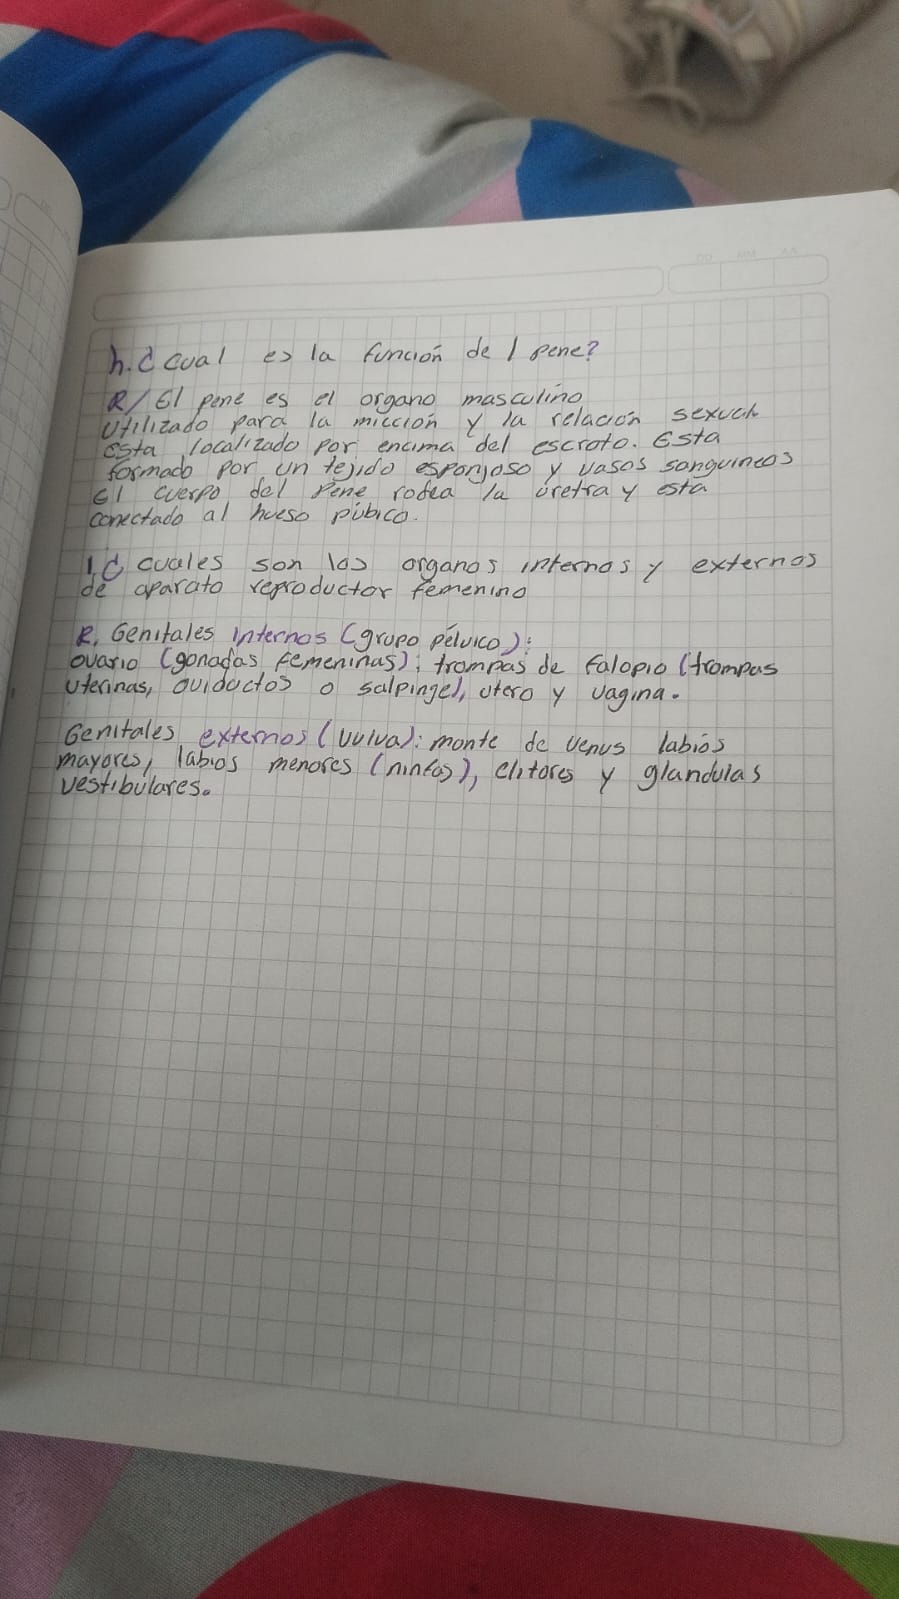 DD MM AA
h. ¿ cual es la función de l pene?
R/ El pene es el organo masculino
utilizado para la micción y la relación sexual
esta localizado por encima del escroto. Esta
formado por un tejido esponjoso y vasos sanguineos
El cuerpo del pene rodea la uretra y esta
conectado al hueso púbico.
I. ¿ cuales son los organos internos y externos
de aparato reproductor femenino
R, Genitales internos (grupo pélvico):
ovario (gonadas femeninas); trompas de falopio (trompas
uterinas, oviductos o salpinge), utero y vagina.
Genitales externos (vulva): monte de venus labios
mayores, labios menores (ninfas), clitores y glandulas
vestibulares.